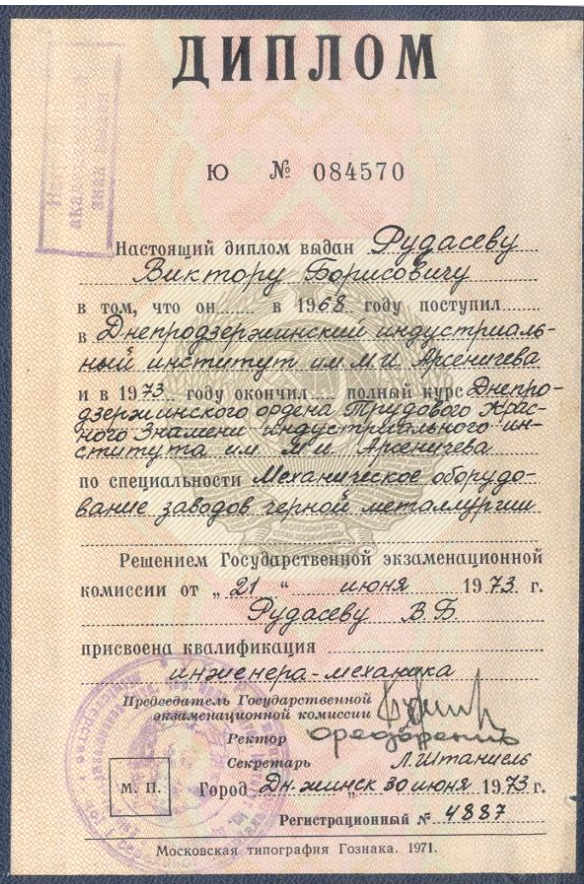 ДИПЛОМ
Ю № 084570
Настоящий диплом выдан Рудасеву
Виктору Борисовичу
в том, что он в 1968 году поступил
в Днепродзержинский индустриаль-
ный институт им М.И Арсеничева
и в 1973 году окончил полный курс Днепро-
дзержинского ордена Трудового Крас-
ного Знамени индустриального ин-
ститута им М И Арсеничева
по специальности Механическое оборудо-
вание заводов черной металлургии
Решением Государственной экзаменационной
комиссии от „21" июня 1973 г.
Рудасеву В.Б.
присвоена квалификация
инженера-механика
Председатель Государственной
экзаменационной комиссии
Ректор
Секретарь
М. П.
Город Дн-жинск „30 июня 1973 г.
Регистрационный № 4887
Московская типография Гознака. 1971.